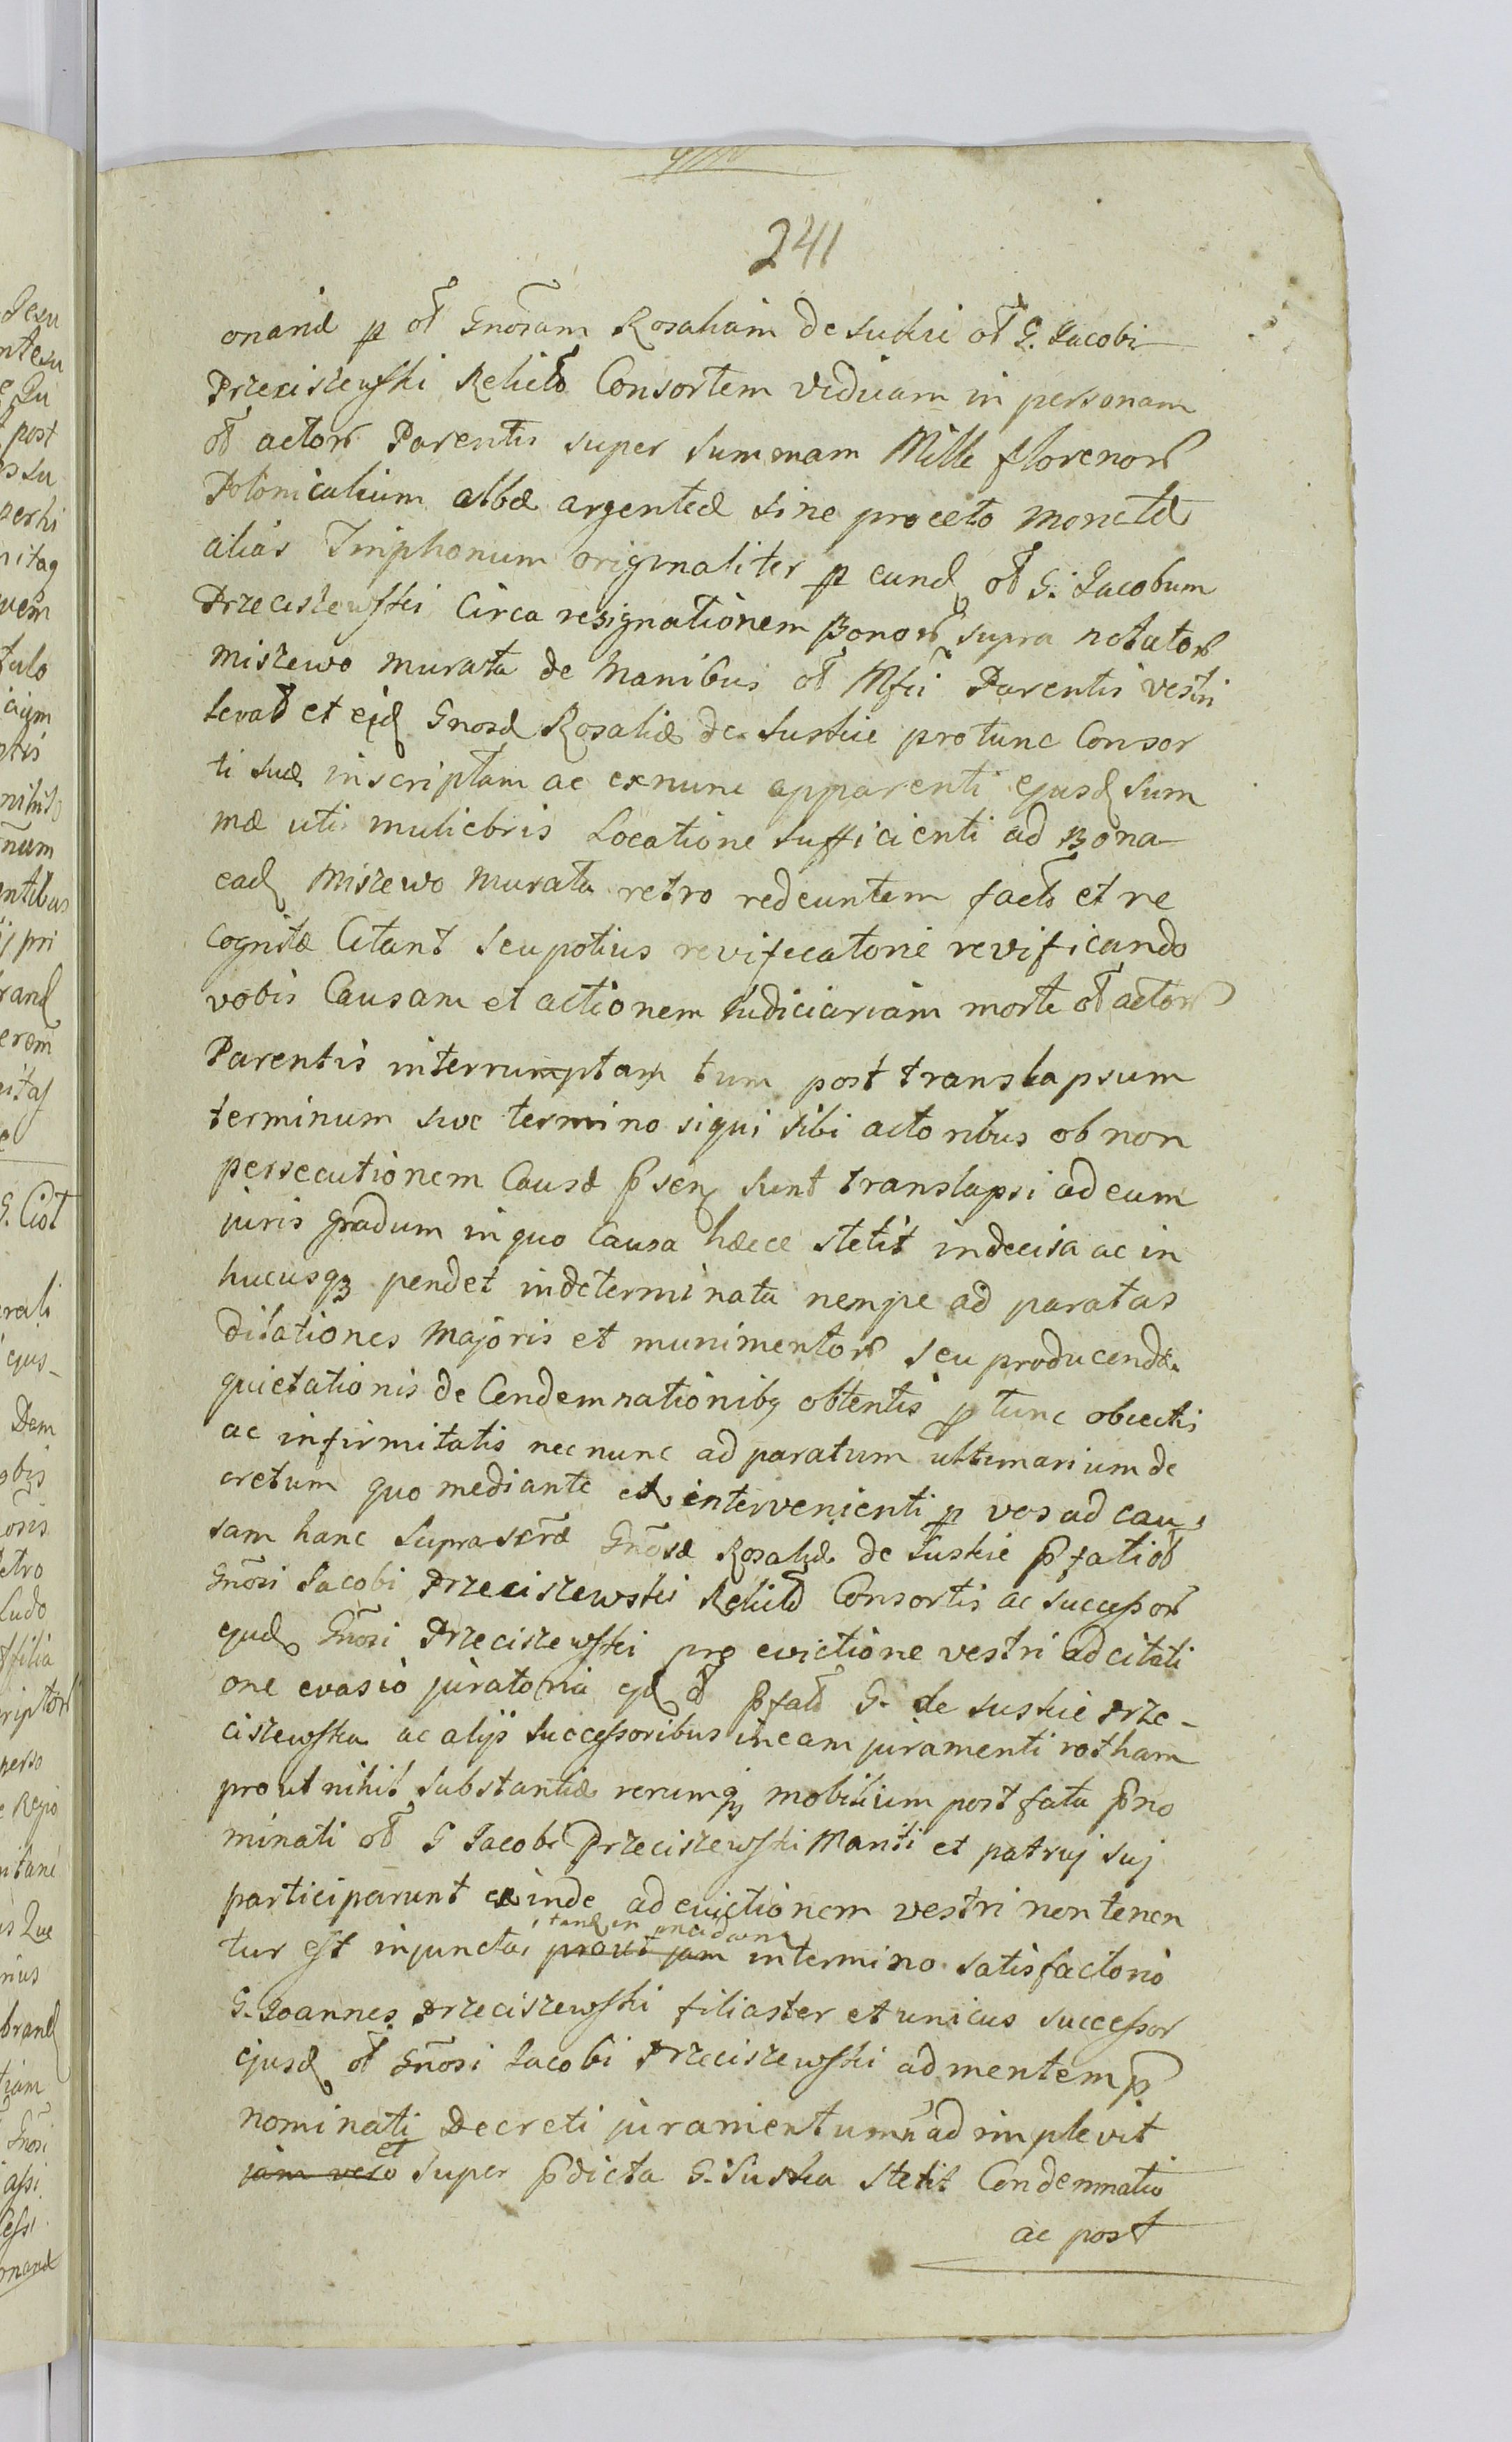 241
onariæ p ol Gnosam Rosaliam de Suskie ol G. Jacobi
Przeciszewski Relictō Consortem viduam in personam
ol actorū Parentis super Summam Mille florenorū
Polonicalium albæ argenteæ sine procete monetæ
alias Tinphonum originaliter p eund ol G. Jacobum
Przeciszewski Circa resignationem Bonorū supra notatorū
Miszewo Murata de Manibus ol Mfci Parentis vestri
levat et ejd Gnosæ Rosaliæ de Suskie protunc Consor
ti suæ inscriptam ac exnunc apparenti ejusd Sum
mæ uti muliebris Locatione Sufficienti ad Bona
ead Miszewo Murata retro redeuntem facto et re
cognitæ Citant seu potius revificatorie revificando
vobis Causam et actionem Judiciariam morte ol actorū
Parentis interrumptam tum post translapsum
terminum sive termino siqui sibi actoribus ob non
persecutionem Causæ p̄sen sunt translapsi ad eum
juris gradum in quo Causa hæcce stetit indecisa ac in
hucusq₃ pendet indeterminata nempe ad paratas
dilationes Majoris et munimentorū seu producendæ
quietationis de Condemnationibq obtentis p tunc obiectis
ac infirmitatis necnunc ad paratum ultimarium de
cretum quo mediante et intervenienti p vos ad cau
sam hanc Suprascræ Gnōsæ Rosaliæ de Suskie p̄fati ol
Gnōsi Jacobi Przeciszewski Relictō Consortis ac successorū
ejusd Gnōsi Przeciszewski pro evictione vestri ad citati
one evasio juratoria ejd ol p̄fatō G. de Suskie Prze-
ciszewska ac alijs Successoribus in eam juramenti rotham
prout nihil Substantiæ rerumq₃ mobilium post fata p̄no
minati ol G Jacobi Przeciszewski Mariti et patruj suj
participarunt exinde ad evictionem vestri non tenen
tur est injuncta, prout jam in termino satisfactorio
G. Joannes Przeciszewski filiaster et unicus successor
ejusd ol Gnōsi Jacobi Przeciszewski ad mentem p̄
nominati Decreti juramentum adimplevit
jam vero et super p̄dicta G. Suska stetit Condemnatio
ac post